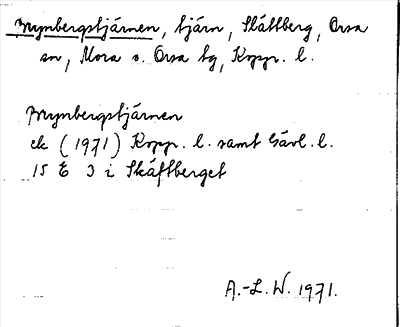 Brynbergstjärnen, tjärn, Skåftberg, Orsa
sn, Mora o. Orsa tg, Kopp. l.
Brynbergstjärnen
ek (1971) Kopp. l. samt Gävl. l.
15 E 3 i Skåftberget
A.-L. W. 1971.